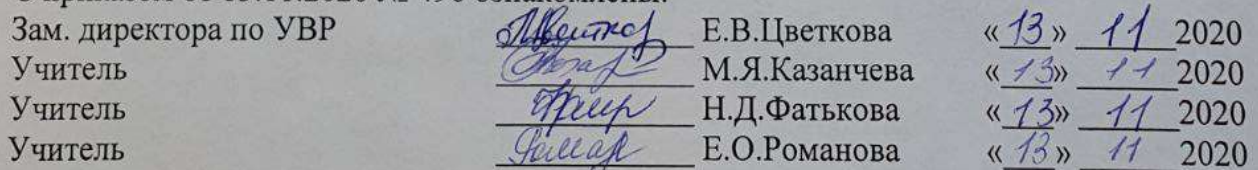 Зам. директора по УВР Е.В.Цветкова «13» 11 2020
Учитель М.Я.Казанчева «13» 11 2020
Учитель Н.Д.Фатькова «13» 11 2020
Учитель Е.О.Романова «13» 11 2020